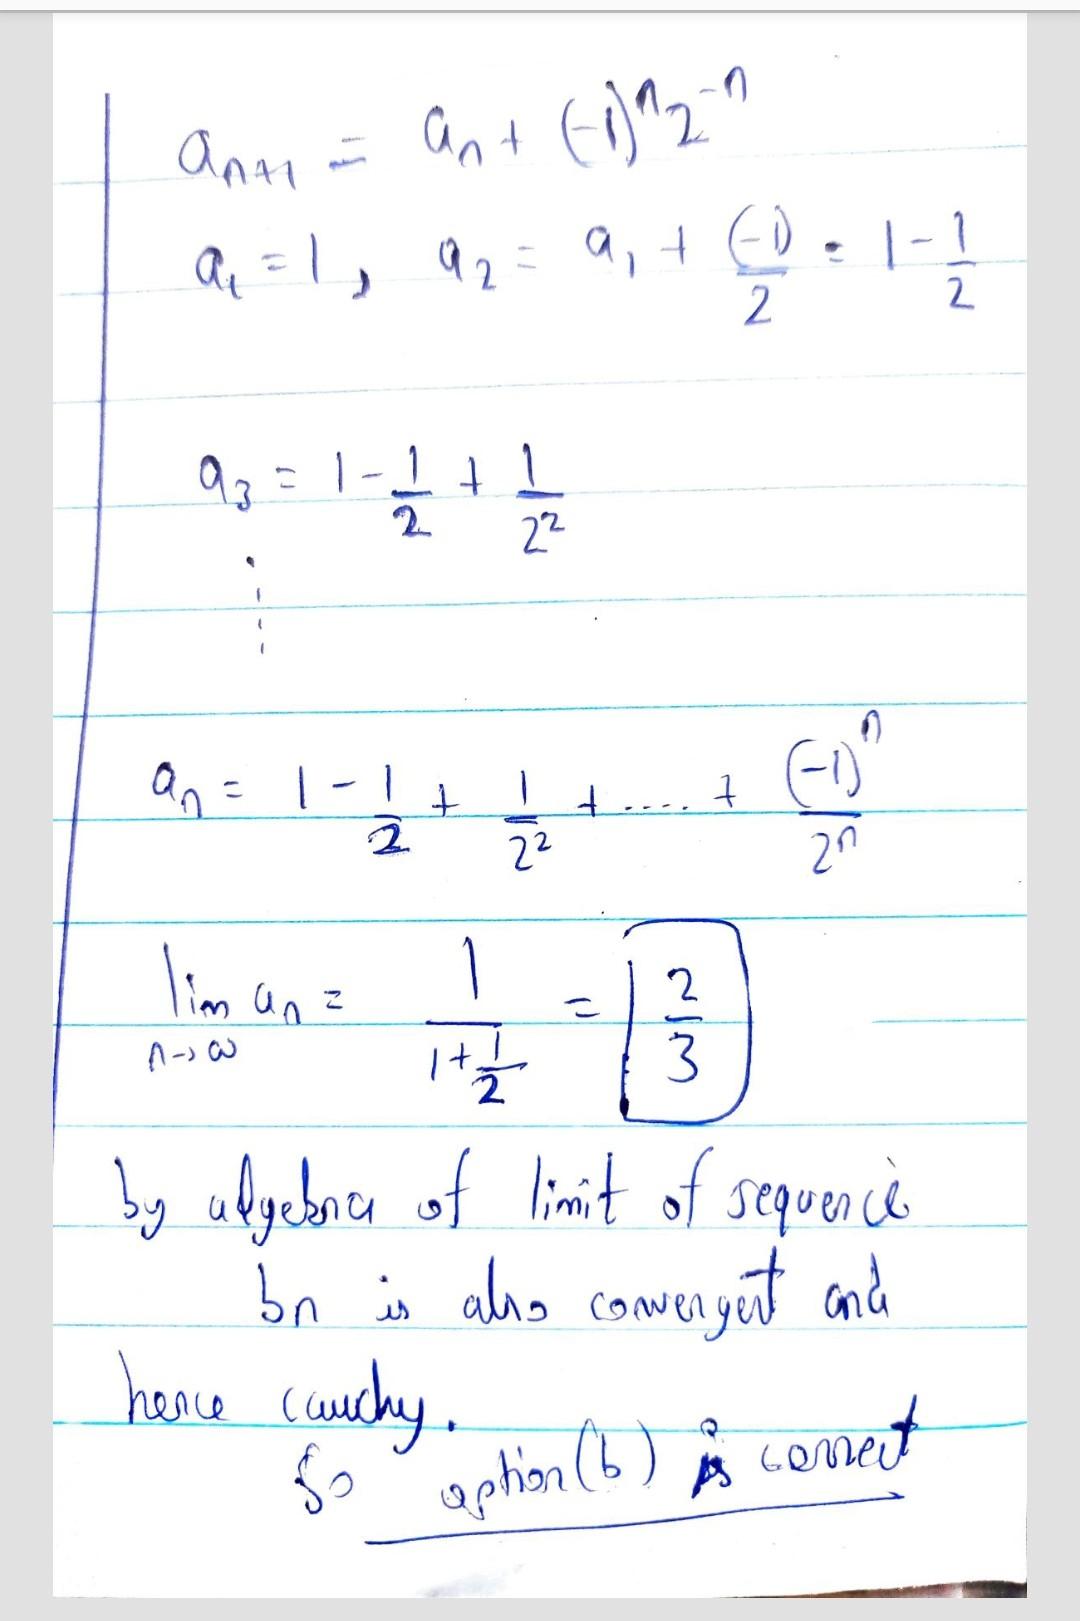 aₙ₊₁ = aₙ + (-1)ⁿ2⁻ⁿ
a₁ = 1, a₂ = a₁ + (-1)/2 = 1 - 1/2
a₃ = 1 - 1/2 + 1/2²
aₙ = 1 - 1/2 + 1/2² + .... + (-1)ⁿ/2ⁿ
lim n→∞ aₙ = 1/(1+1/2) = 2/3
by algebra of limit of sequence
bn is also convergent and
hence cauchy.
So option (b) is correct